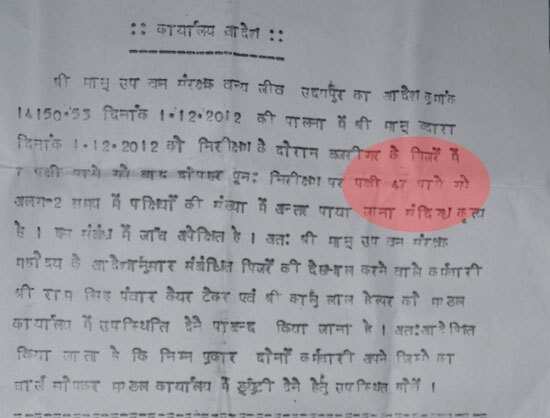 :: कार्यालय आदेश ::
श्री मान् उप वन संरक्षक वन्य जीव उदयपुर का आदेश क्रमांक
14150-53 दिनांक 1.12.2012 की पालना में श्री मान् द्वारा
दिनांक 1.12.2012 को निरीक्षण के दौरान के पिंजरे में
7 पक्षी पाये गये बाद दोपहर पुनः निरीक्षण पर पक्षी 47 पाये गये
अलग-2 समय में पक्षियों की संख्या में अन्तर पाया जाना संदिग्ध कृत्य
है । इस संबंध में जांच अपेक्षित है । अतः श्री मान् उप वन संरक्षक
महोदय के आदेशानुसार संबंधित पिंजरे की देखभाल करने वाले कर्मचारी
श्री राम सिंह पंवार केयर टेकर एवं श्री लाल हेल्पर को मण्डल
कार्यालय में उपस्थिति देने पाबन्द किया जाता है । अतः
किया जाता है कि निम्न प्रकार दोनों कर्मचारी अपने जिम्मे का
चार्ज सोंपकर मण्डल कार्यालय में ड्यूटी देने हेतु उपस्थित होवें ।